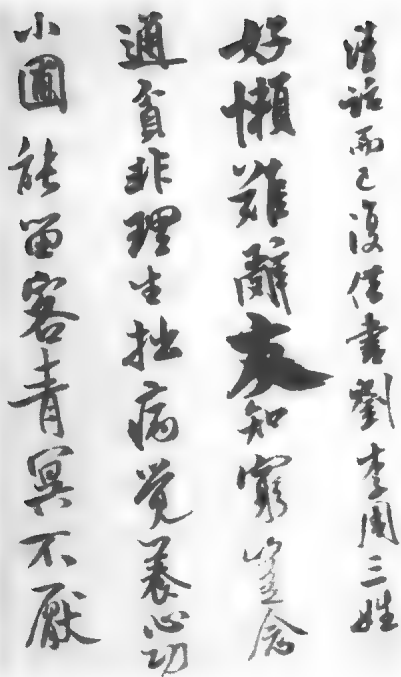 清话而已复借书刘李周三姓
好懶難辭友知窮豈念
通貧非理生拙病覺養心功
小圃能留客青冥不厭